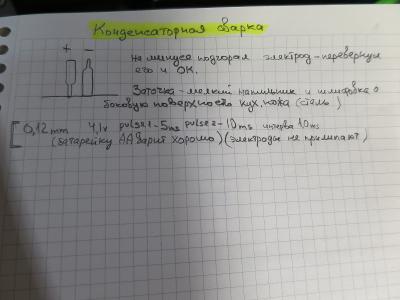 Конденсаторная сварка
+ -
На минусе подгорал электрод - перевернул
его и ОК.
Заточка - мелкий напильник и шлифовка о
боковую поверхность кух. ножа (сталь)
0,12 mm 4,1v pulse1-5ms pulse2-10ms интерва 10ms
(батарейку АА варит хорошо) (электроды не прилипают)